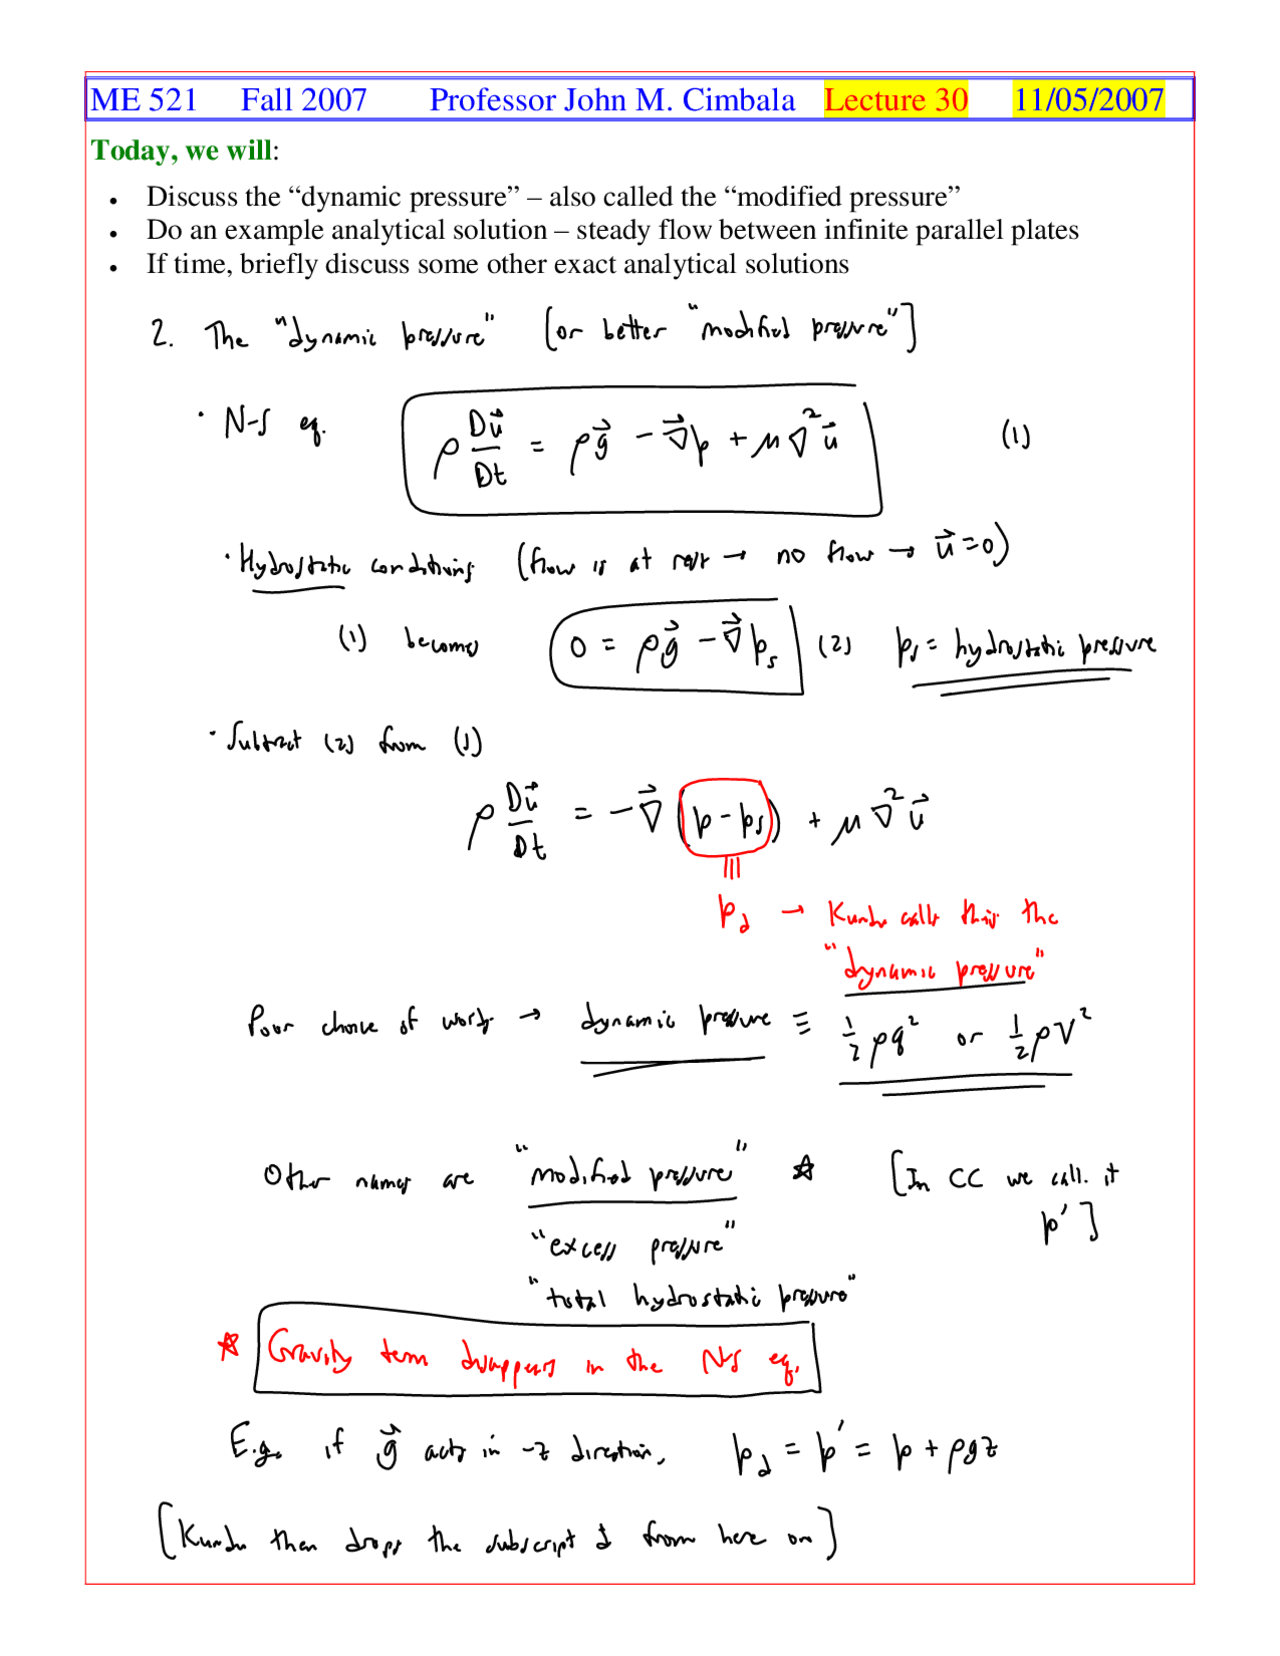 ME 521 Fall 2007 Professor John M. Cimbala Lecture 30 11/05/2007
Today, we will:
• Discuss the “dynamic pressure” – also called the “modified pressure”
• Do an example analytical solution – steady flow between infinite parallel plates
• If time, briefly discuss some other exact analytical solutions
2. The "dynamic pressure" [or better "modified pressure"]
· N-S eq. ρ Du⃗/Dt = ρg⃗ - ∇⃗p + μ∇²u⃗ (1)
· Hydrostatic conditions (flow is at rest → no flow → u⃗=0)
(1) becomes 0 = ρg⃗ - ∇⃗pₛ (2) pₛ = hydrostatic pressure
· Subtract (2) from (1)
ρ Du⃗/Dt = -∇⃗(p - pₛ) + μ∇²u⃗
p_d → Kundu calls this the
"dynamic pressure"
Poor choice of words → dynamic pressure ≡ ½ρq² or ½ρV²
Other names are "modified pressure" ☆ [In CC we call it
p′]
"excess pressure"
"total hydrostatic pressure"
☆ Gravity term disappears in the N-S eq.
E.g. if g⃗ acts in -z direction, p_d = p′ = p + ρgz
[Kundu then drops the subscript d from here on]